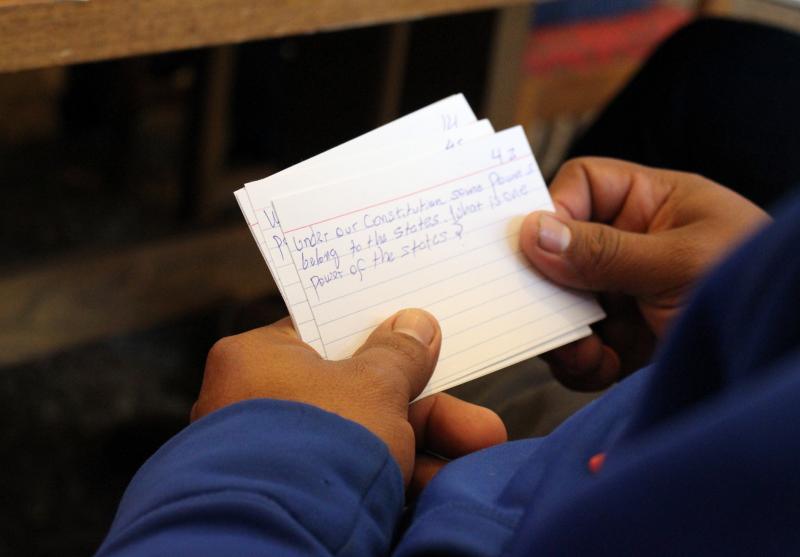 42
Under our Constitution some Powers
belong to the states. What is one
Power of the states?